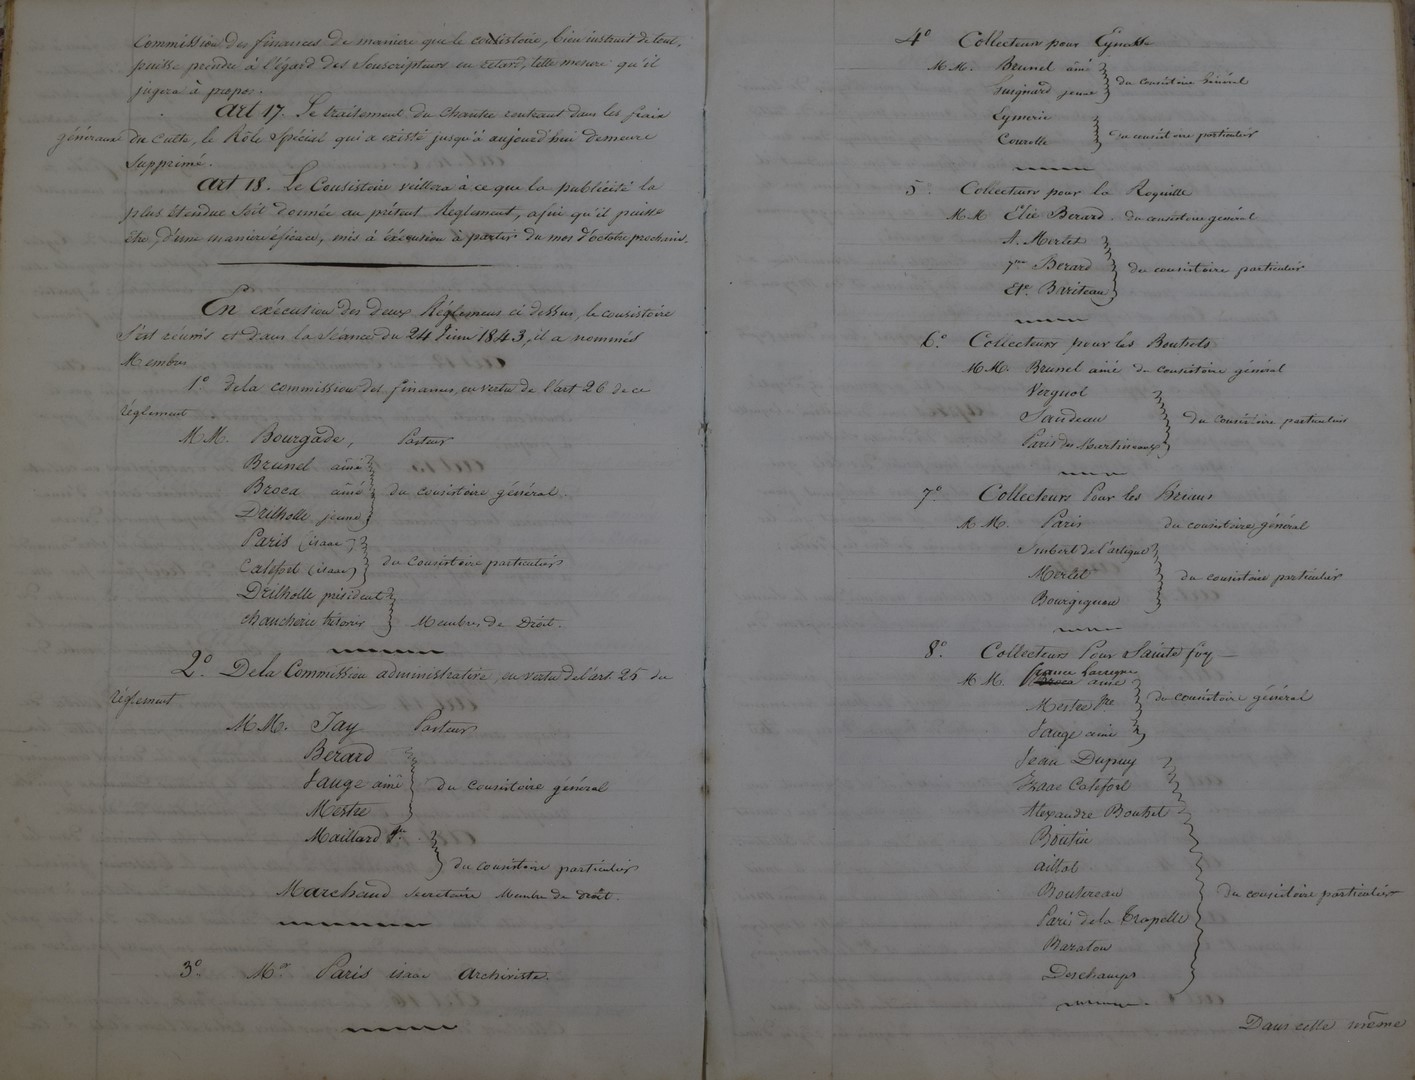 Commission des finances de manière que le consistoire, bien instruit de tout,
puisse prendre à l'égard des souscripteurs en retard, telle mesure qu'il
jugera à propos.
art 17. Le traitement du Chantre rentrant dans les frais
généraux du Culte, le Rôle spécial qui a existé jusqu'à aujourd'hui demeure
supprimé.
art 18. Le Consistoire veillera à ce que la publicité la
plus étendue soit donnée au présent Règlement, afin qu'il puisse
être, d'une manière éficace, mis à éxécution à partir du mos d'octobre prochain.
En exécution des deux Réglemens ci dessus, le consistoire
s'est réuni et dans la séance du 24 1843, il a nommés
Membres
1º de la commission des finances, en vertu de l'art 26 de ce
règlement
MM. Bourgade, Pasteur
Brunel ainé
Broca ainé du consistoire général.
Drilholle jeune
Paris (isaac)
Catefort (isaac) du Consistoire particulier
Drilholle président
chaucherie trésorier Membres de Droit.
2º De la Commission administrative, en vertu de l'art. 25 du
règlement
MM. Jay Pasteur
Berard
Jauge ainé du consistoire général
Mestre
Maillard
du consistoire particulier
Marchand secretaire Membre de droit.
3º Mr Paris isaac archiviste.
4º Collecteurs pour Eynesse
MM. Brunel ainé
Guignard jeune du consistoire Général
Eymerie
Courolle du consistoire particulier
5º Collecteurs pour la Roquille
MM Elie Berard. du consistoire général
A. Merlet
Berard du consistoire particulier
Ete. Bariteau
6º Collecteurs pour les Bouhets
MM. Brunel ainé du consistoire général
Vergnol
Jaudeau du consistoire particulier
Paris des Martineaux
7º Collecteurs Pour les Briaus
MM. Paris du consistoire général
Imbert de l'artigue
Merlet du consistoire particulier
Bourgignon
8º Collecteurs Pour Sainte foy
france Lavergne
MM. Broca ainé
Mestre du consistoire général
Jauge ainé
Jean Dupuy
Isaac Catefort
Alexandre Bouhet
Boutin
aillol
Boutereau du consistoire particulier
Paris de la Trapelle
Baraton
Deschamps
Dans cette même